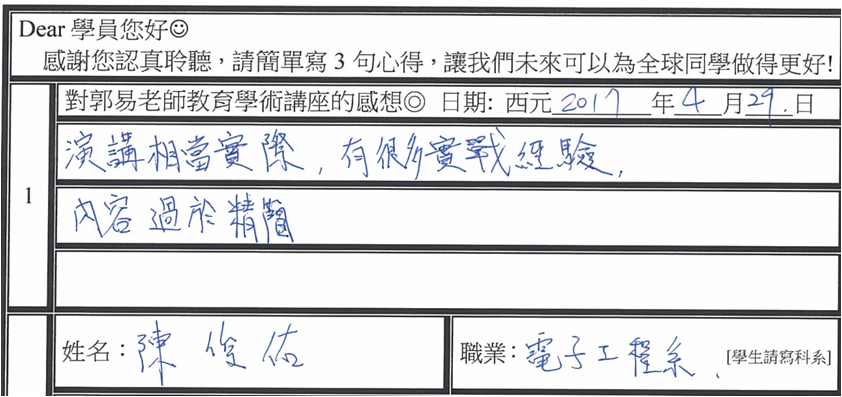 Dear 學員您好☺
感謝您認真聆聽，請簡單寫 3 句心得，讓我們未來可以為全球同學做得更好!
對郭易老師教育學術講座的感想◎ 日期: 西元 2017 年 4 月 29. 日
1
演講相當實際，有很多實戰經驗，
內容過於精簡
姓名：陳俊佑
職業：電子工程系. [學生請寫科系]